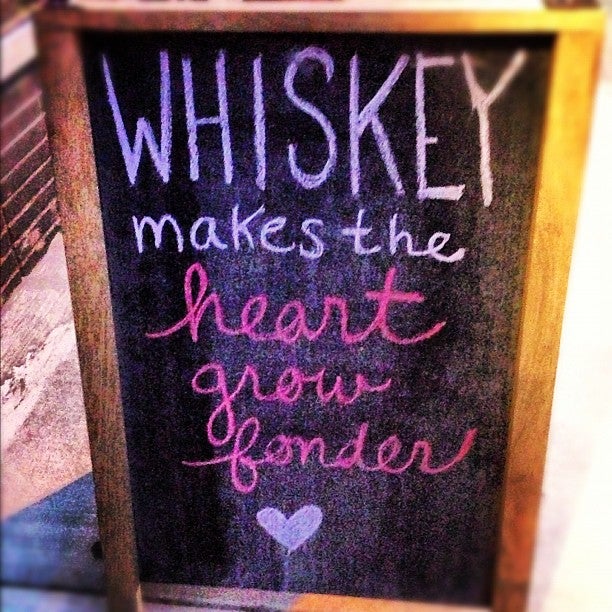 WHISKEY
makes the
heart
grow
fonder